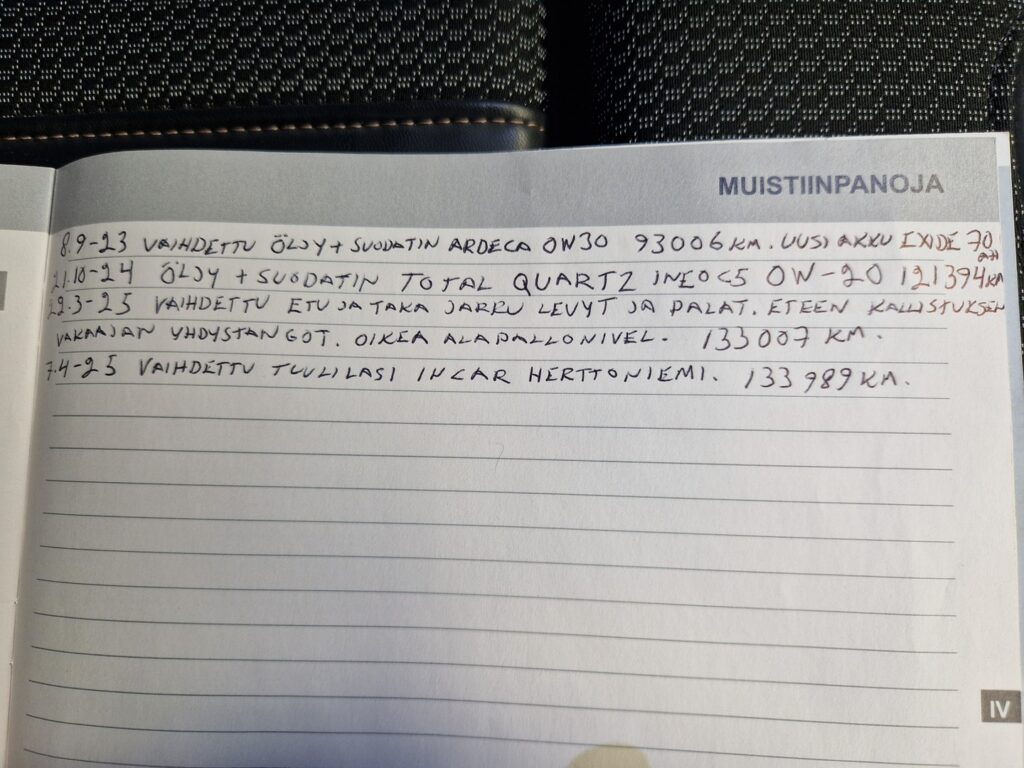 MUISTIINPANOJA
8.9-23 VAIHDETTU ÖLJY + SUODATIN ARDECA 0W30 93006 KM. UUSI AKKU EXIDE 70 AH
21.10-24 ÖLJY + SUODATIN TOTAL QUARTZ INEOC5 0W-20 121394 KM
22.3-25 VAIHDETTU ETU JA TAKA JARRU LEVYT JA PALAT. ETEEN KALLISTUKSEN
VAKAAJAN YHDYSTANGOT. OIKEA ALAPALLONIVEL. 133007 KM.
7.4-25 VAIHDETTU TUULILASI INCAR HERTTONIEMI. 133989 KM.
IV